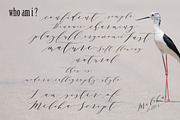 who am i?
confident simple
human charming
playfull ergonomic fast
mature soft flowing
natural
this is
modern calligraphy style
I am sister of
Melisha Script